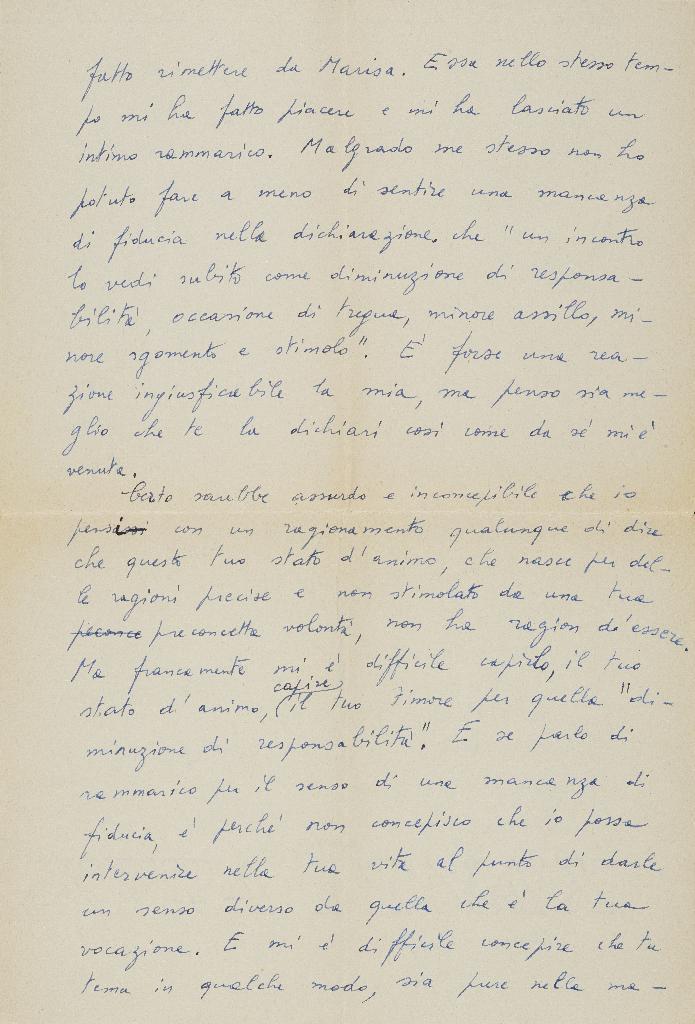 fatto rimettere da Marisa. Essa nello stesso tem-
po mi ha fatto piacere e mi ha lasciato un
intimo rammarico. Malgrado me stesso non ho
potuto fare a meno di sentire una mancanza
di fiducia nella dichiarazione. che "un incontro
lo vedi subito come diminuzione di responsa-
bilità, occasione di tregua, minore assillo, mi-
nore sgomento e stimolo". E' forse una rea-
zione ingiustificabile la mia, ma penso sia me-
glio che te la dichiari così come da sé mi è
venuta.
Certo sarebbe assurdo e inconcepibile che io
pensi con un ragionamento qualunque di dire
che questo tuo stato d'animo, che nasce per del-
le ragioni precise e non stimolato da una tua
preconcetta volontà, non ha ragion d'essere.
Ma francamente mi è difficile capirlo, il tuo
stato d'animo, (capire il tuo timore per quella "di-
minuzione di responsabilità". E se parlo di
rammarico per il senso di una mancanza di
fiducia, è perché non concepisco che io possa
intervenire nella tua vita al punto di darle
un senso diverso da quella che è la tua
vocazione. E mi è difficile concepire che tu
tema in qualche modo, sia pure nella ma-